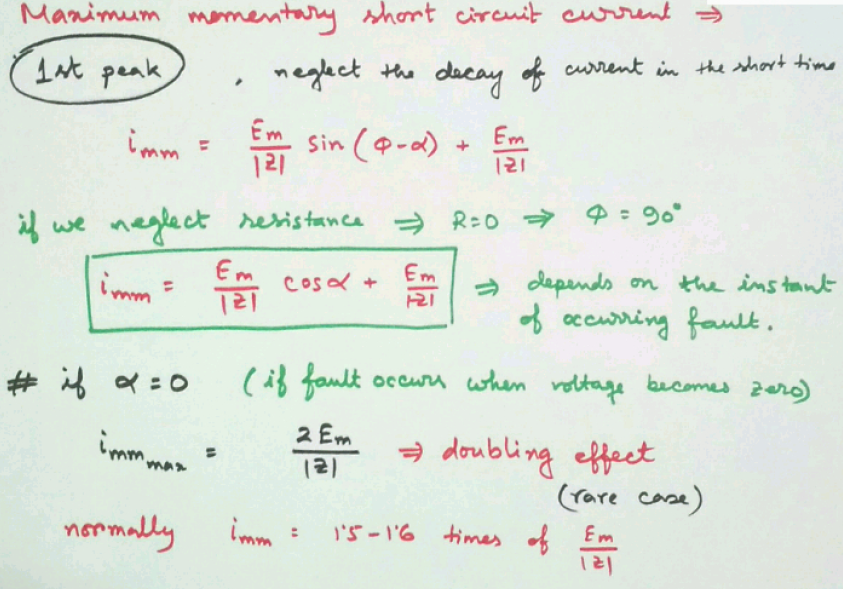 Maximum momentary short circuit current ⇒
1st peak , neglect the decay of current in the short time
imm = Em/|Z| sin (φ-α) + Em/|Z|
if we neglect resistance ⇒ R=0 ⇒ φ = 90°
imm = Em/|Z| cosα + Em/|Z| ⇒ depends on the instant
of occurring fault.
# if α=0 (if fault occurs when voltage becomes zero)
imm max = 2Em/|Z| ⇒ doubling effect
(rare case)
normally imm = 1.5-1.6 times of Em/|Z|